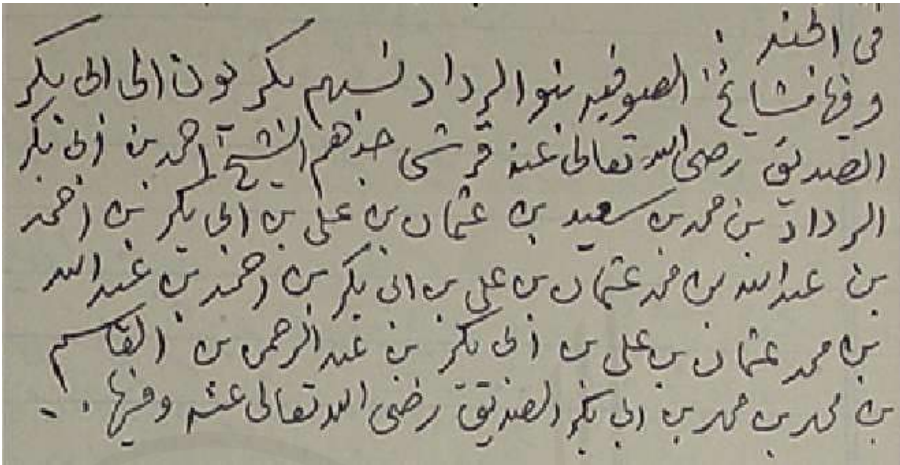 فى الجند
وفيها مشايخ الصوفيه بنو الرداد نسبهم بكريون الى ابى بكر
الصديق رضى الله تعالى عنه قرشى جدهم الشيخ احمد بن أبى بكر
الرداد بن محمد بن سعيد بن عثمان بن على بن ابى بكر بن احمد
بن عبدالله بن محمد عثمان بن على بن ابى بكر بن احمد بن عبدالله
بن محمد عثمان بن على بن أبى بكر بن عبدالرحمن بن القاسم
بن محمد بن محمد بن ابى بكر الصديق رضى الله تعالى عنه وفيها . .